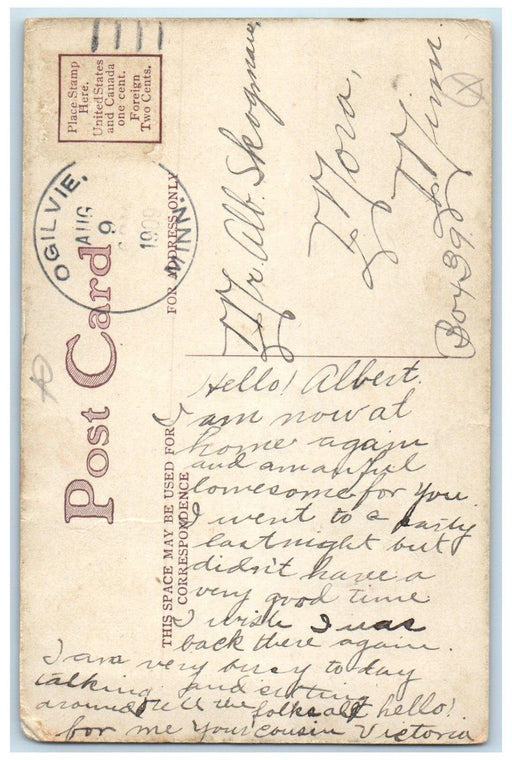 Place Stamp
Here.
United States
and Canada
one cent.
Foreign
Two Cents.
OGILVIE,
AUG
9
1909
MINN.
Post Card
FOR ADDRESS ONLY
Mr. Alb. Skogman,
Mora,
Minn.
Box 39
THIS SPACE MAY BE USED FOR
CORRESPONDENCE
Hello! Albert.
I am now at
home again
and am awful
lonesome for you.
I went to a party
last night but
didn't have a
very good time.
I wish I was
back there again.
I am very busy today
talking and sitting
around tell the folks all hello!
for me your cousin Victoria